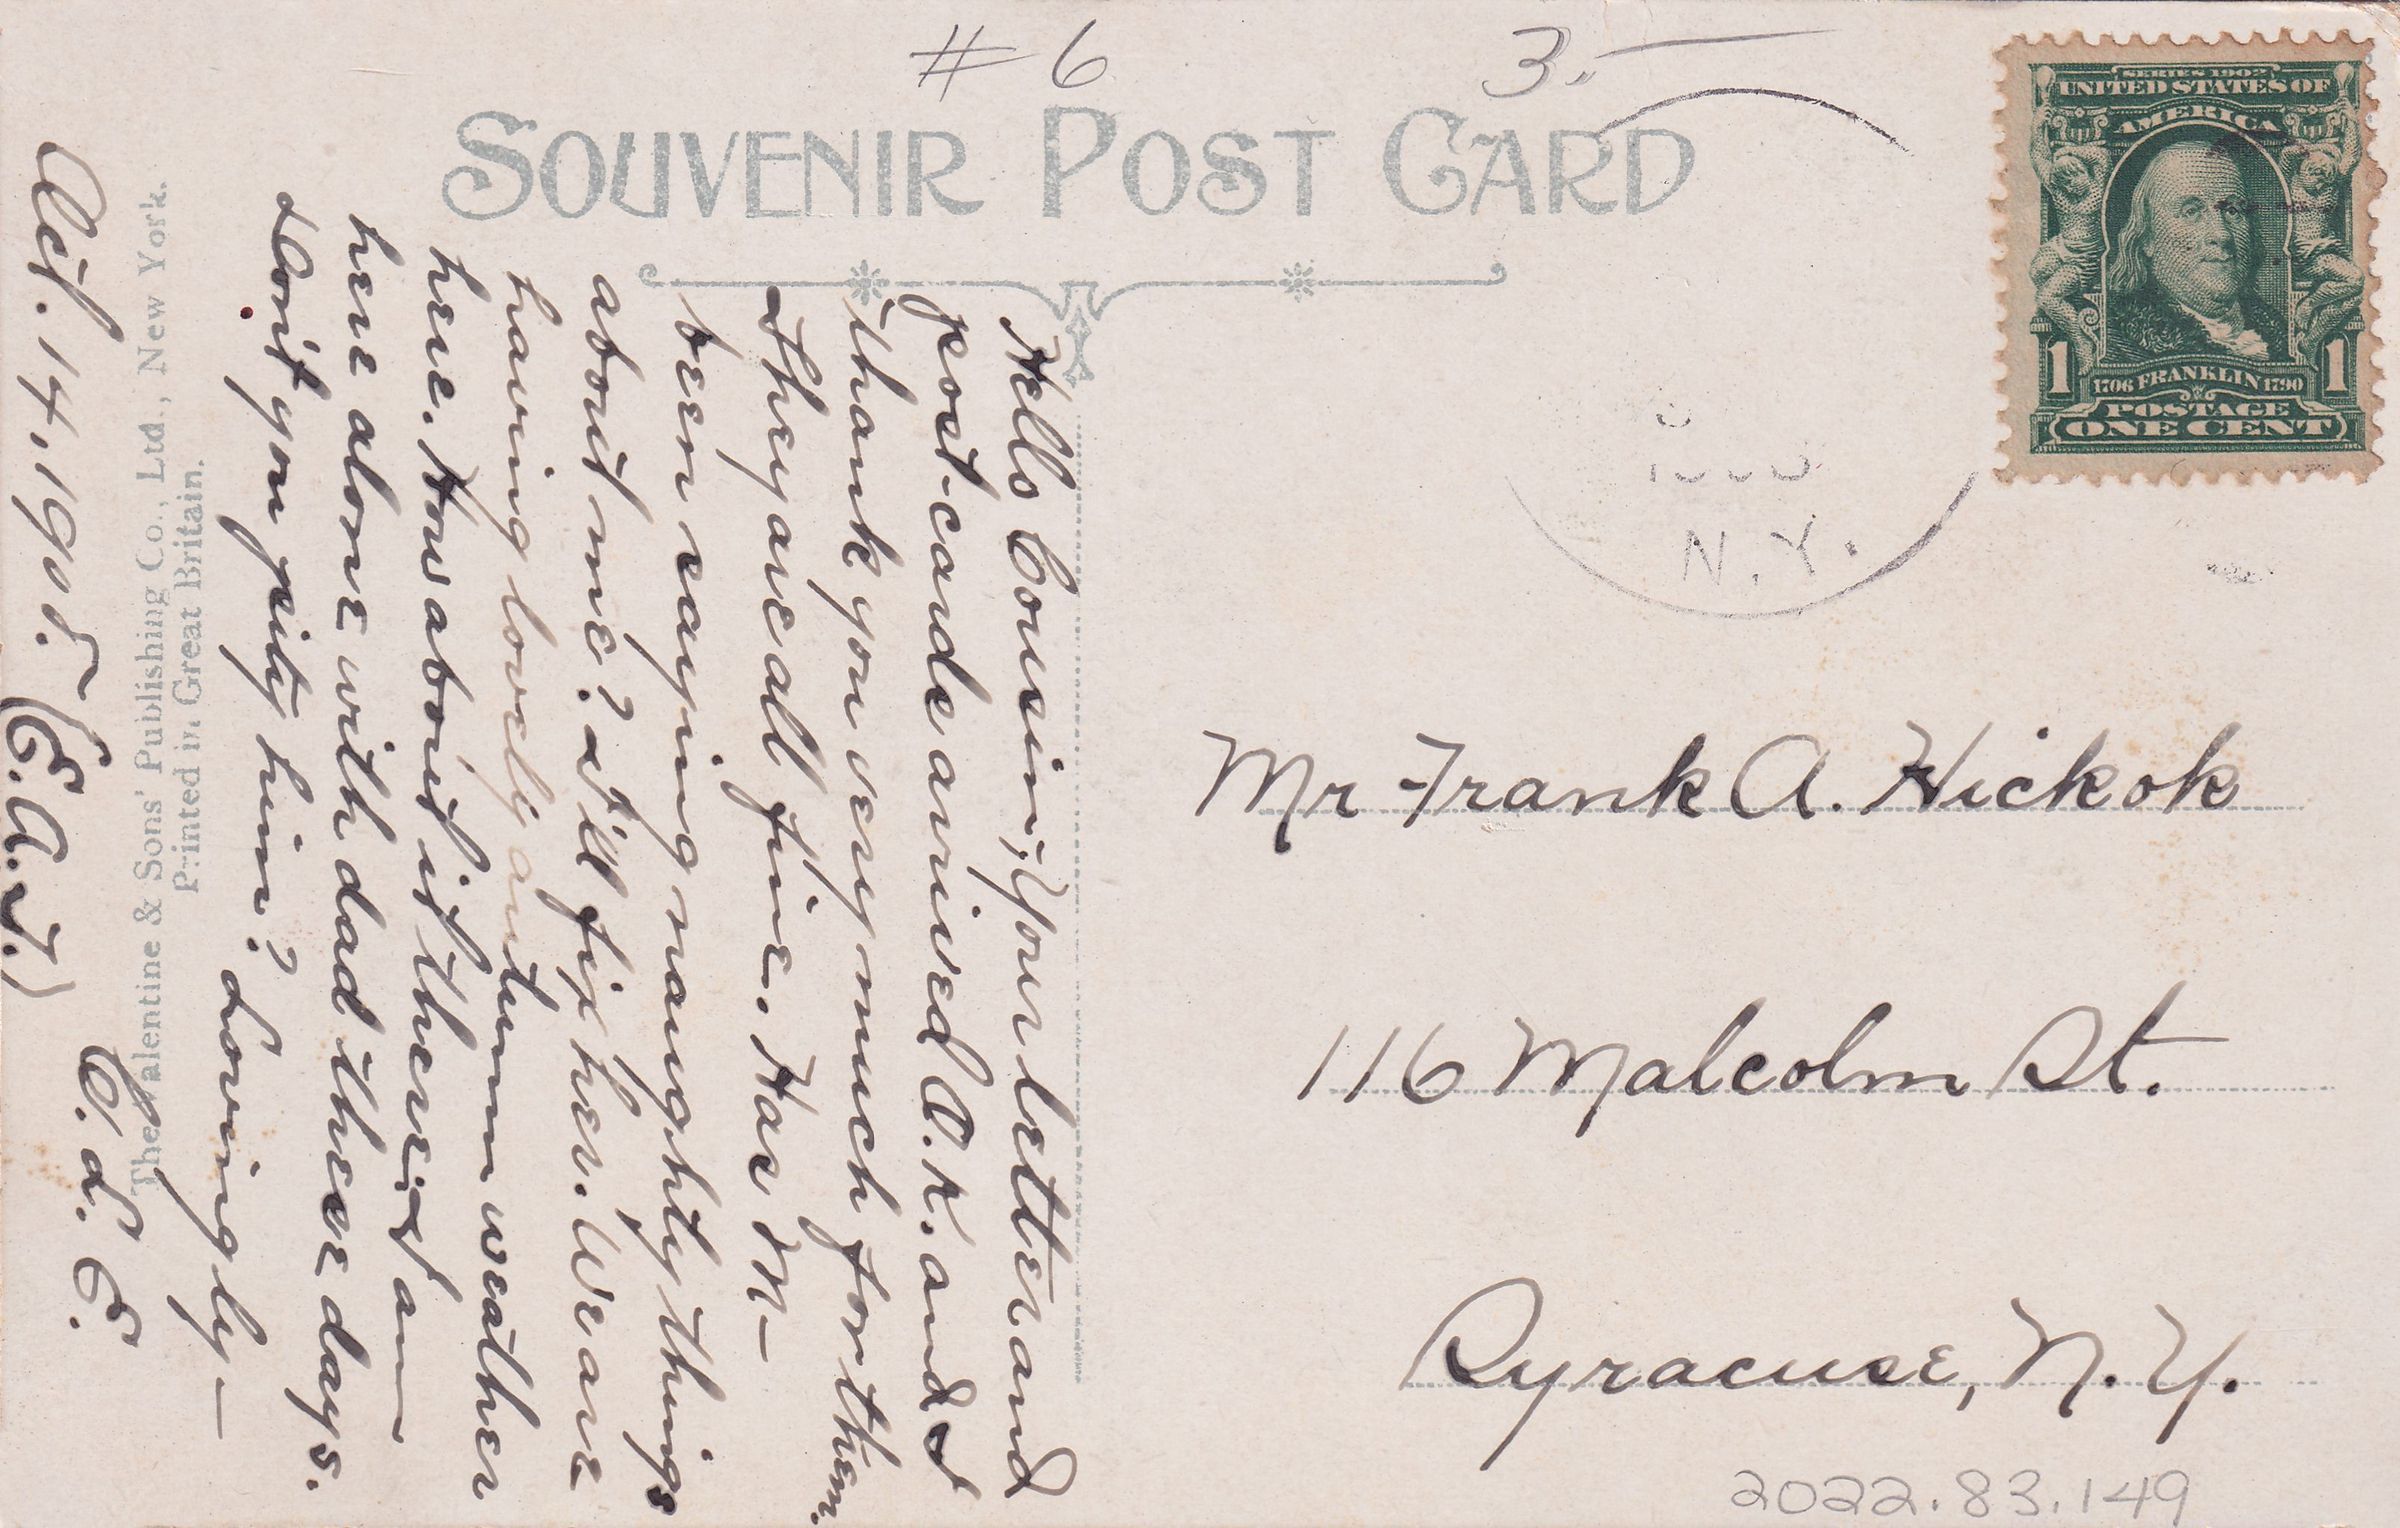 # 6
3.—
SOUVENIR POST CARD
SERIES 1902
UNITED STATES OF
AMERICA
1706 FRANKLIN 1790
1 1
POSTAGE
ONE CENT
N.Y.
Mr Frank A. Hickok
116 Malcolm St.
Syracuse, N.Y.
2022.83.149
Hello Cousin;- Your letter and
post-cards arrived O.K. and I
thank you very much for them.
They are all fine. Has M—
been saying naughty things
about me? I'll fix her. We are
having lovely autumn weather
here. How about it there; I am
here alone with dad these days.
Don't you pity him? Lovingly—
C. L. E.
The Valentine & Sons' Publishing Co., Ltd., New York.
Printed in Great Britain.
Oct. 14, 1908. (E.A.J.)